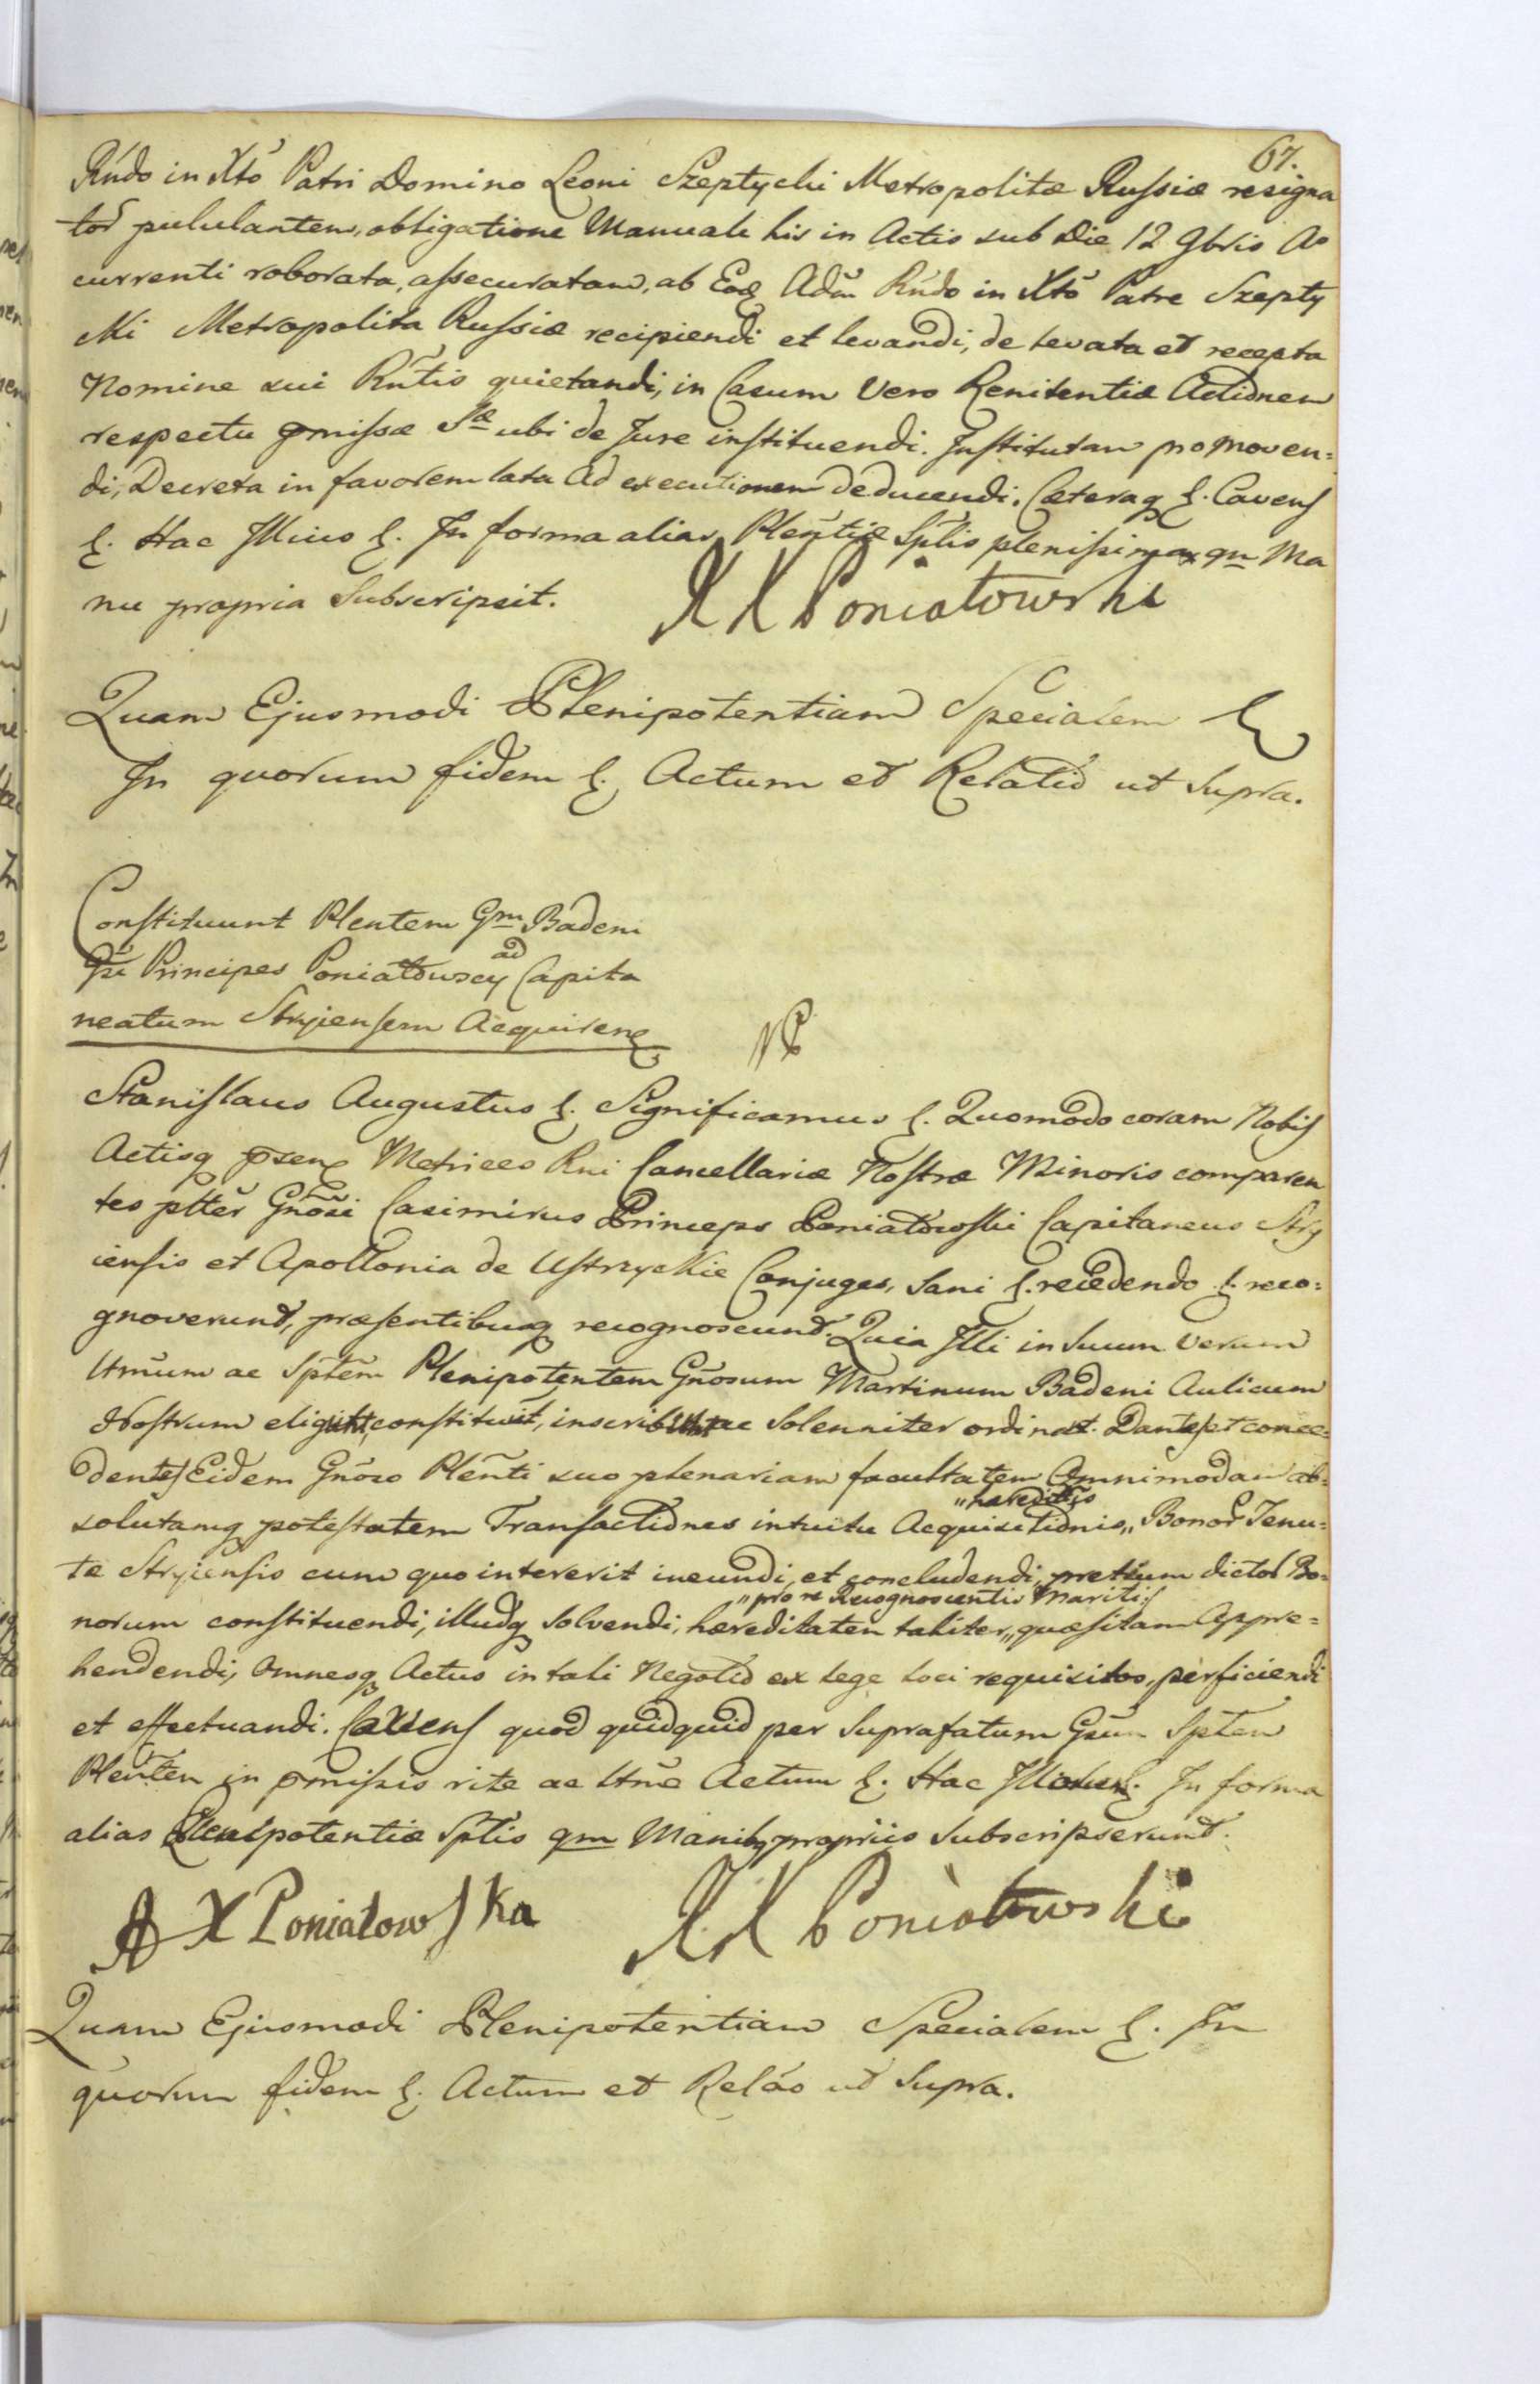 67.
Rńdo in Xtõ Patri Domino Leoni Szeptycki Metropolitæ Russiæ resigna
tor pululantem, obligatione Manuali his in Actis sub Die 12 9bris Aº
currenti roborata, assecuratam, ab Eodẽ Adm̃ Rńdo in Xtõ Patre Szepty
cki Metropolita Russiæ recipiendi et levandi, de levata et recepta
Nomine sui Rñtis quietandi, in Casum vero Renitentiæ Actionem
respectu pmissæ Sæ ubi de Jure instituendi. Institutam promoven=
di, Decreta in favorem lata Ad executionem deducendi. Cæteraq &. Cavens
&. Hac Illius &. In forma alias Plẽntiæ Spl̃is plenissima qm Ma
nu propria Subscripsit.
X K Poniatowski
Quam Ejusmodi Plenipotentiam Specialem &
In quorum fidem &. Actum et Relatio ut Supra.
Constituunt Plentem Gm Badeni
Gsi Principes Poniatowscy ad Capita
neatum Stryiensem Acquirenḍ
NP
Stanislaus Augustus &. Significamus &. Quomodo coram Nobis
Actisq psenḅ Metrices Rni Cancellariæ Nostræ Minoris comparen
tes plt̃er Gñosi Casimirus Princeps Poniatowski Capitaneus Stry
iensis et Apollonia de Ustrzyckie Conjuges, Sani &. recedendo &. reco=
gnoverunt, præsentibusq recognoscunt. Quia Illi in Suum Verum
Ltm̃um ac Spl̃tem Plenipotentem Gñosum Martinum Badeni Aulicum
Nostrum eligunt, constituit, inscribunt ac Solenniter ordinat. Dantes et conce=
dentes Eidem Gñoso Plẽnti suo plenariam facultatem Omnimodam ab=
solutamq potestatem Transactiones intuitu Acquisitionis „ Bonor Tenu=
„hæreditis
tæ Stryiensis cum quo intererit ineundi, et concludendi, pretium dictor Bo=
norum constituendi, illudq Solvendi, hæreditatem taliter „ quæsitam Appre=
„pro re Recognoscentis Mariti
hendendi, Omnesq Actus in tali Negotio ex lege loci requisitos, perficiendi
et effectuandi. Cavens quod quidquid per Suprafatum Gsum Spl̃tem
Plẽnten in pmissis rite ac Ltm̃e Actum &. Hac &. In forma
alias Plenipotentiæ Spl̃is qm Manibq propriis Subscripserunt.
A X Poniatowska
X K Poniatowski
Quam Ejusmodi Plenipotentiam Specialem &. In
quorum fidem &. Actum et Relão ut Supra.